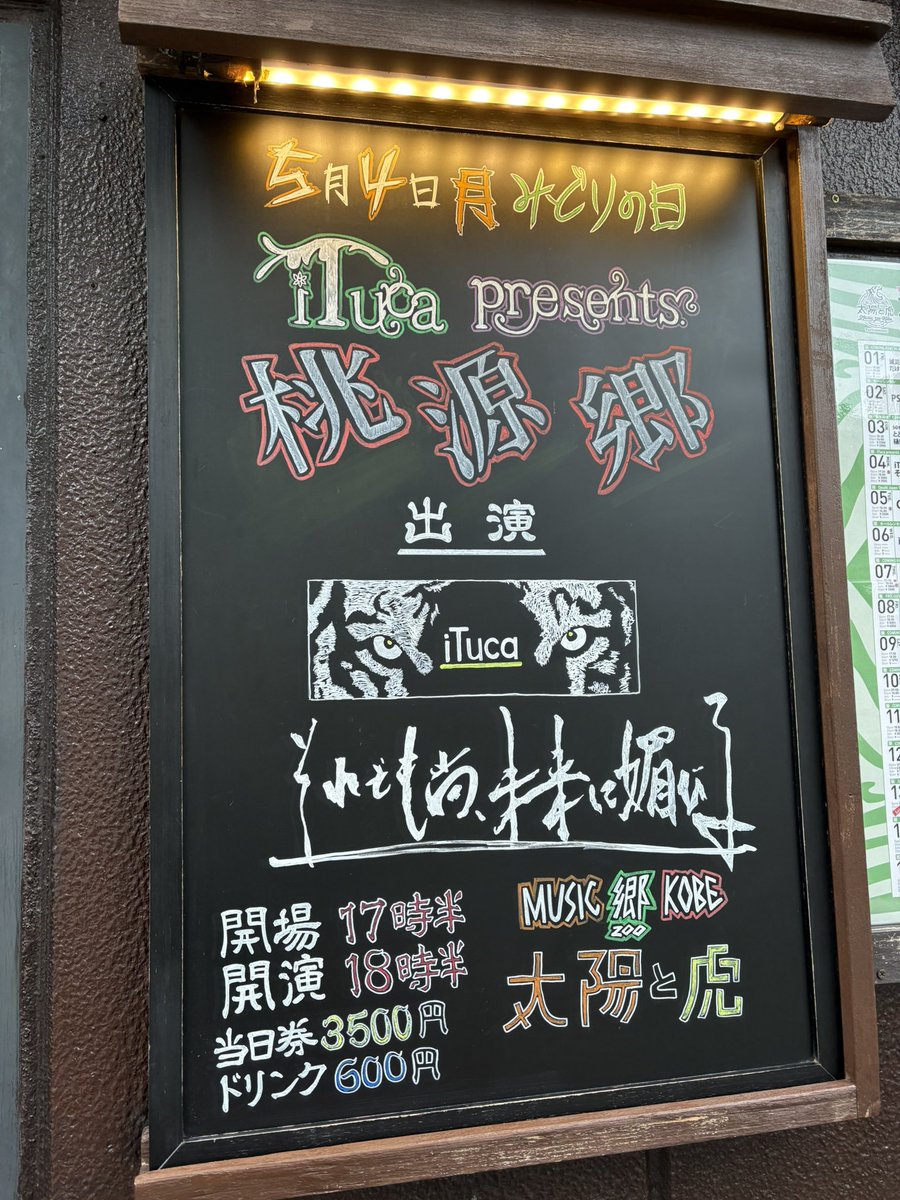 5月4日月みどりの日
iTuca presents.
桃源郷
出演
iTuca
それでも尚、未来に媚びる
開場 17時半
開演 18時半
当日券3500円
ドリンク600円
MUSIC 郷 KOBE
ZOO
太陽と虎
太陽と虎
01
02
03
04
05
06
07
08
09
10
11
12